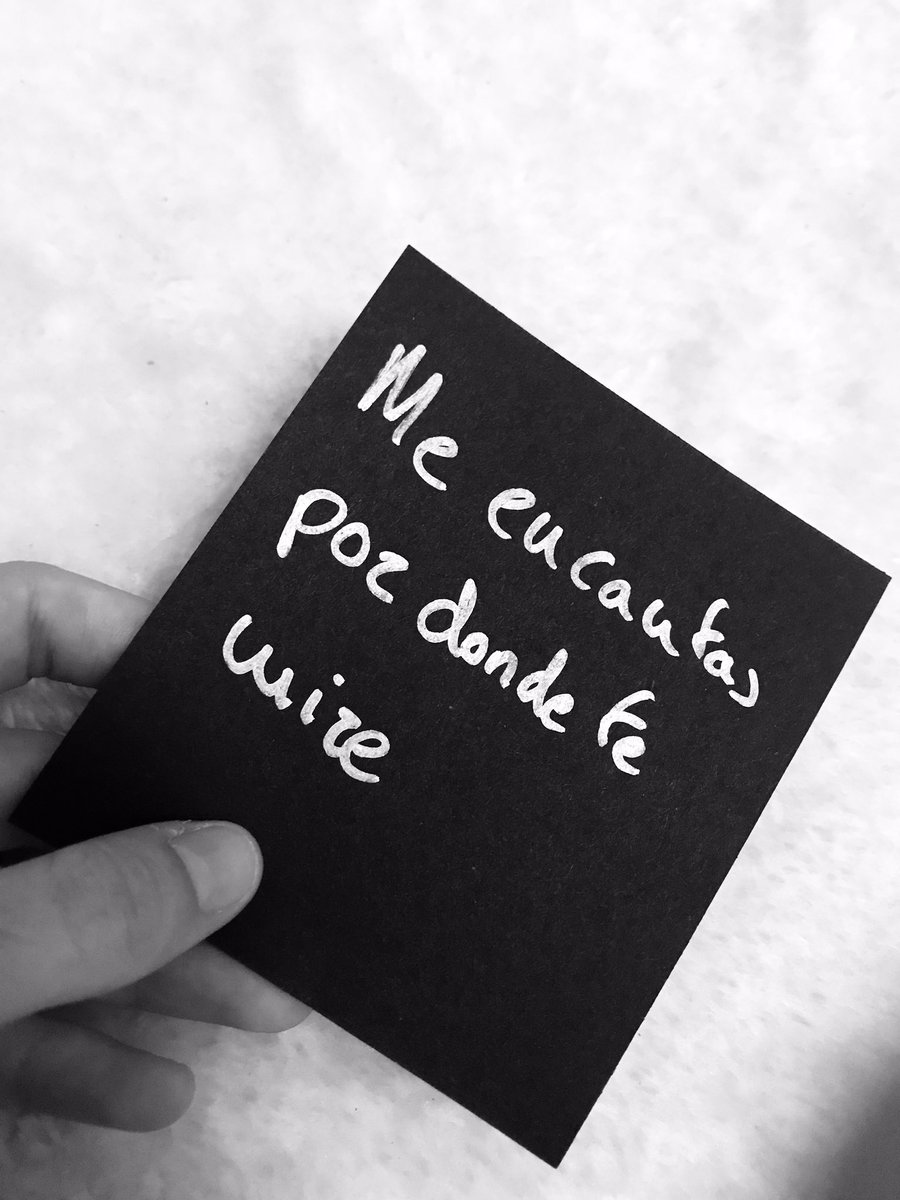 Me encantas
por donde te
mire